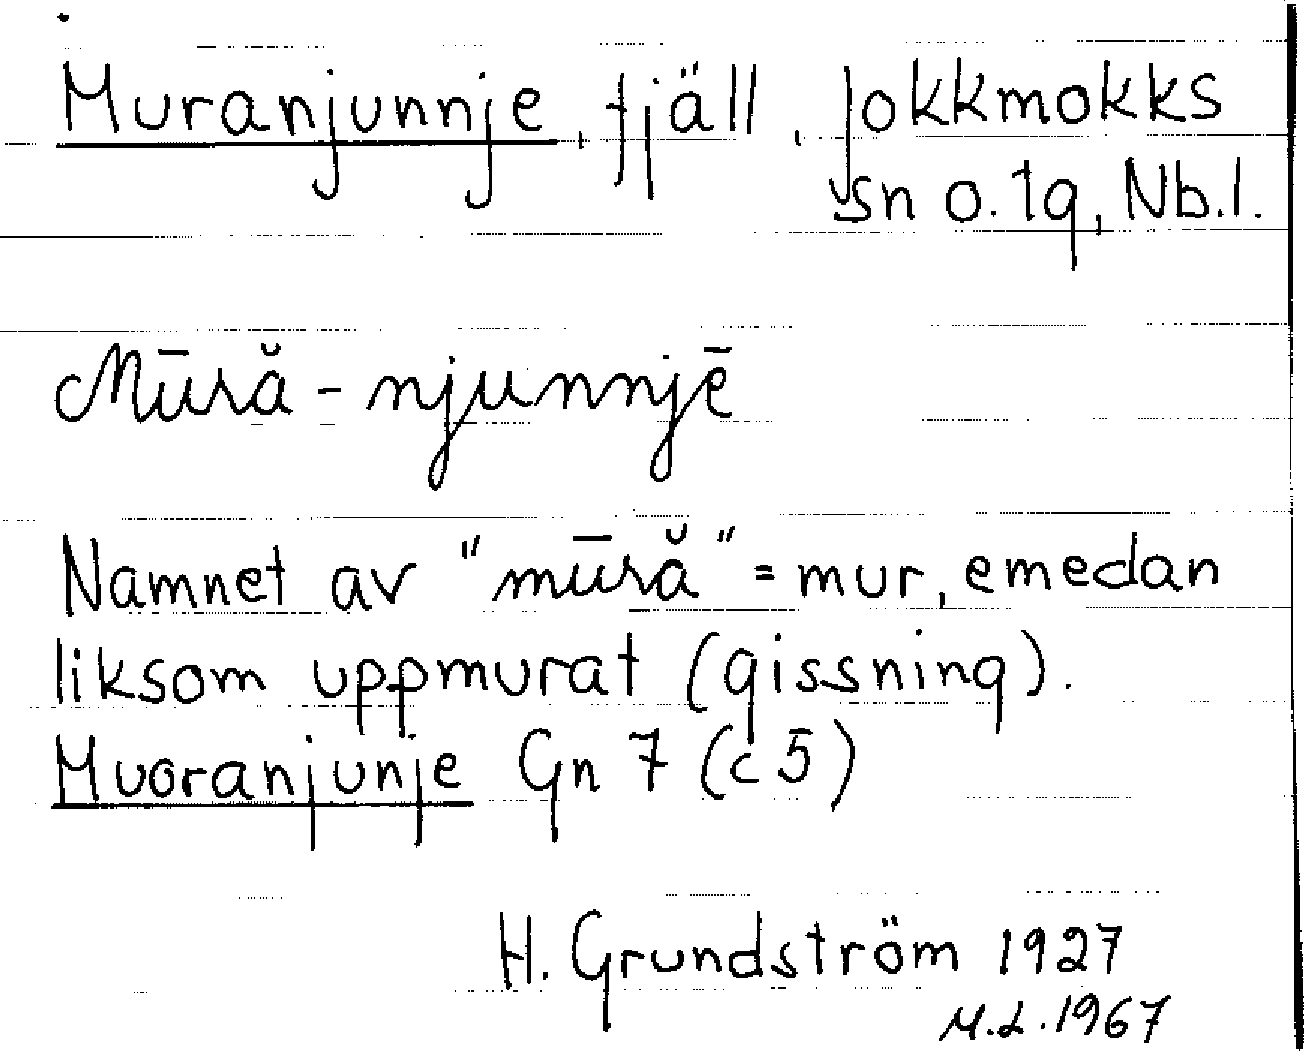 Muranjunnje, fjäll, Jokkmokks
sn o. lg, Nb.l.
Mūră-njunnjē
Namnet av "mūră" = mur, emedan
liksom uppmurat (gissning).
Muoranjunje Gn 7 (c 5)
H. Grundström 1927
M.L. 1967